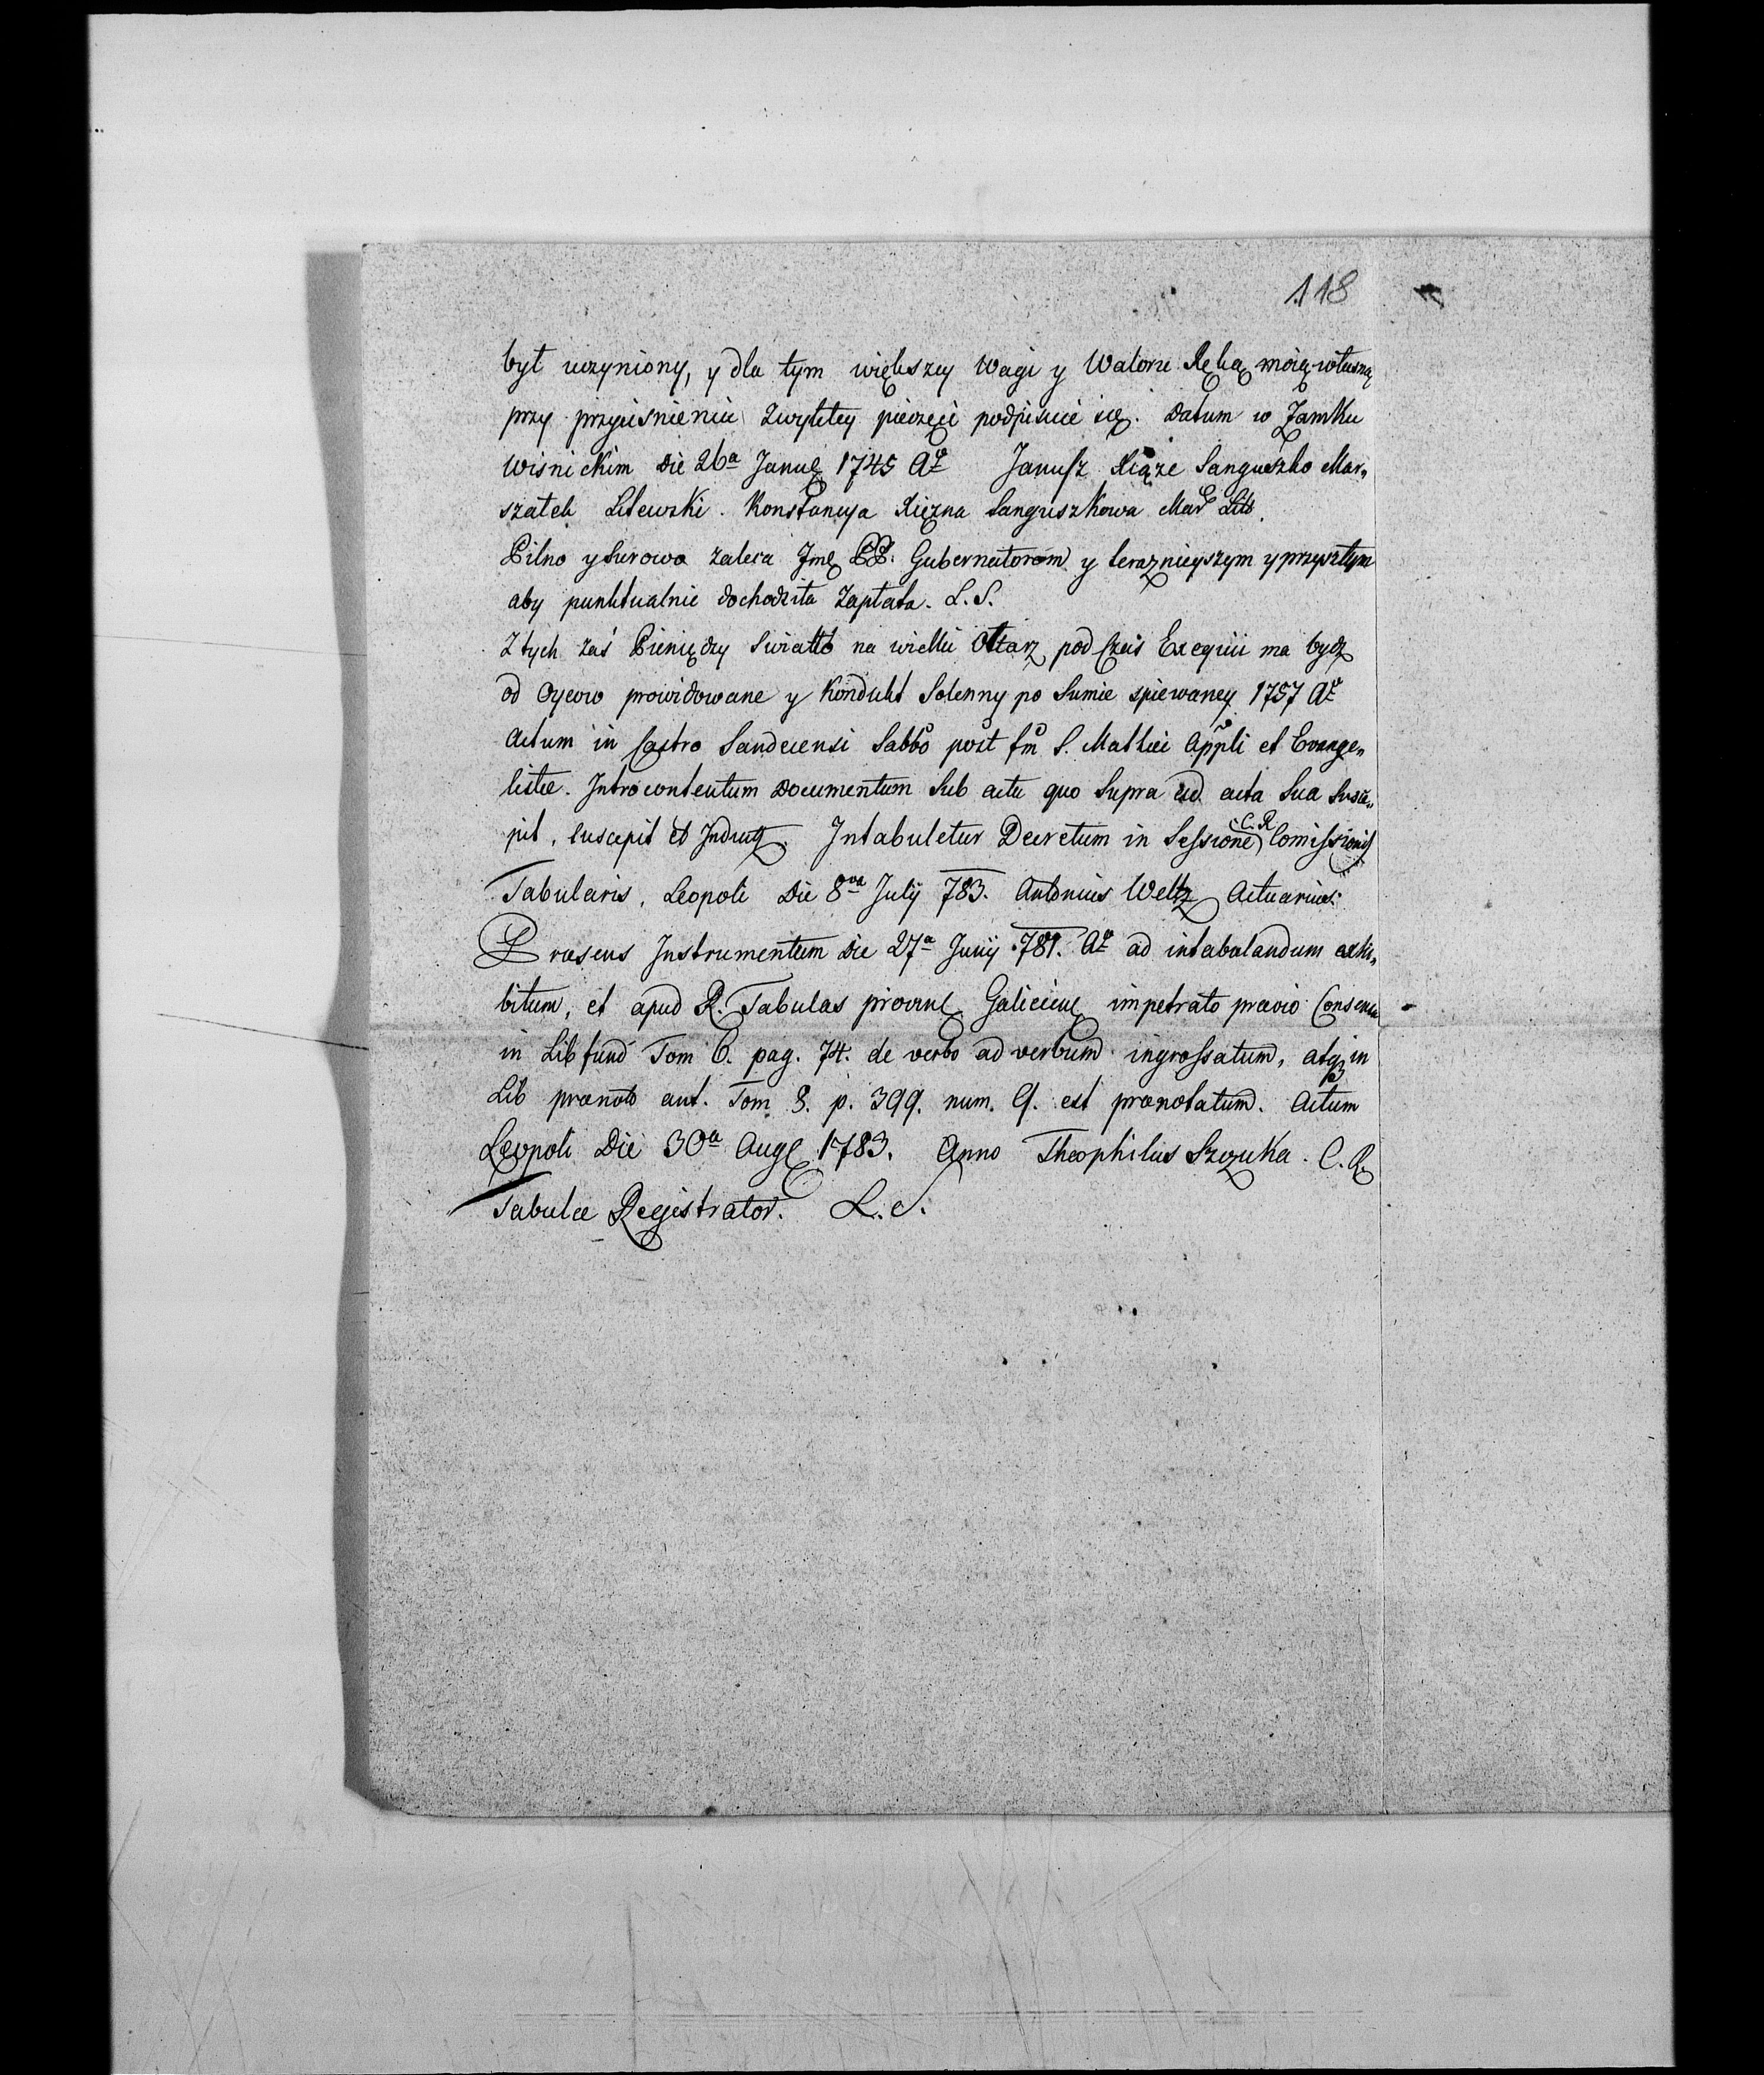 118
był uczyniony, y dla tym większey wagi y Waloru Ręką moią własną
przy przyciśnieniu zwykłey pieczęci podpisuię się. Datum w Zamku
Wisnickim Die 26a Janu 1745 Ao Janusz Xiąże Sanguszko Mar„
szałek Litewski. Konstancya Xiężna Sanguszkowa Mar Litt.
Pilno y surowo zaleca Jme PP. Gubernatorom y teraznieyszym y przyszłym
aby punktualnie dochodziła zapłata. L. S.
Z tych zaś Pieniędzy Swiatło na wielki Ołtarz pod Czas Exequii ma bydz
od Oycow prowidowane y Kondukt Solenny po Sumie spiewaney 1757 Ao
Actum in Castro Sandecensi Sabbo post fm S. Mathaei Appli et Evange„
listae. Introcontentum Documentum Sub actu quo Supra ad acta Sua Susce„
pit, suscepit et Induxt. Intabuletur Decretum in Sessione C. R. Comissionis
Tabularis, Leopoli Die 8va July 783. Antonius Weltz Actuarius.
Praesens Instrumentum Die 27a Junij 781. Ao ad intabulandum exhi„
bitum, et apud R. Tabulas provinc Galiciene impetrato praevio Consensu
in Lib fund Tom 6. pag. 74. de verbo ad verbum ingrossatum, atq in
Lib praenot ant. Tom 8. p. 399. num. 9. est praenotatum. Actum
Leopoli Die 30a Aug 1783. Anno Theophilus Szczuka. C. R.
Tabulae Registrator. L. S.